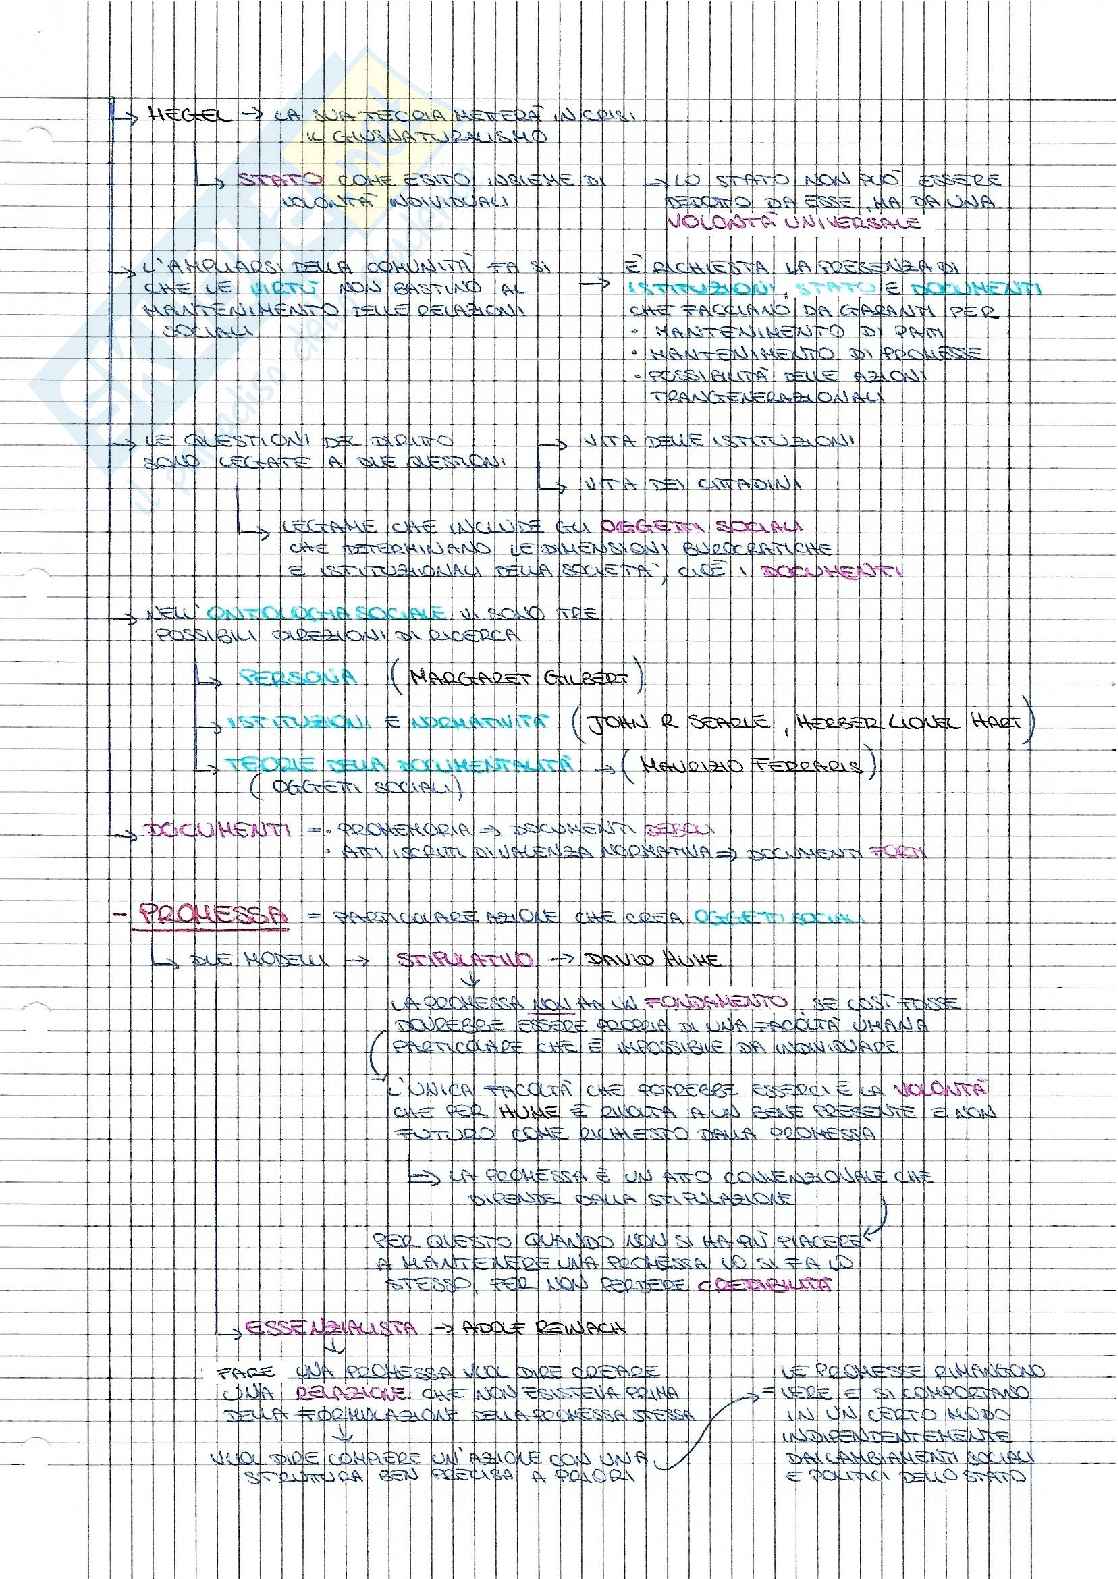 ↳ HEGEL → LA SUA TEORIA METTERÀ IN CRISI
IL GIUSNATURALISMO
↳ STATO COME ESITO INSIEME DI
VOLONTÀ INDIVIDUALI
→ LO STATO NON PUÒ ESSERE
DEDOTTO DA ESSE, MA DA UNA
VOLONTÀ UNIVERSALE
→ L'AMPLIARSI DELLA COMUNITÀ FA SI
CHE LE VIRTÙ NON BASTINO AL
MANTENIMENTO DELLE RELAZIONI
SOCIALI
→ È RICHIESTA LA PRESENZA DI
ISTITUZIONI, STATO E DOCUMENTI
CHE FACCIANO DA GARANTI PER
• MANTENIMENTO DI PATTI
• MANTENIMENTO DI PROMESSE
• POSSIBILITÀ DELLE AZIONI
TRANGENERAZIONALI
→ LE QUESTIONI DEL DIRITTO
SONO LEGATE A DUE QUESTIONI
→ VITA DELLE ISTITUZIONI
↳ VITA DEI CITTADINI
↳ LEGAME CHE INCLUDE GLI OGGETTI SOCIALI
CHE DETERMINANO LE DIMENSIONI BUROCRATICHE
E ISTITUZIONALI DELLA SOCIETÀ, CIOÈ I DOCUMENTI
→ NELL'ONTOLOGIA SOCIALE VI SONO TRE
POSSIBILI DIREZIONI DI RICERCA
↳ PERSONA (MARGARET GILBERT)
→ ISTITUZIONI E NORMATIVITÀ (JOHN R SEARLE, HERBER LIONEL HART)
↳ TEORIE DELLA DOCUMENTALITÀ → (MAURIZIO FERRARIS)
(OGGETTI SOCIALI)
→ DOCUMENTI = • PROMEMORIA → DOCUMENTI DEBOLI
• ATTI ISCRITTI DI VALENZA NORMATIVA ⇒ DOCUMENTI FORTI
- PROMESSA = PARTICOLARE AZIONE CHE CREA OGGETTI SOCIALI
↳ DUE MODELLI → STIPULATIVO → DAVID HUME
↓
LA PROMESSA NON HA UN FONDAMENTO, SE COSÌ FOSSE
DOVREBBE ESSERE PROPRIA DI UNA FACOLTÀ UMANA
PARTICOLARE CHE È IMPOSSIBILE DA INDIVIDUARE
L'UNICA FACOLTÀ CHE POTREBBE ESSERCI È LA VOLONTÀ
CHE PER HUME È RIVOLTA A UN BENE PRESENTE E NON
FUTURO COME RICHIESTO DALLA PROMESSA
→ LA PROMESSA È UN ATTO CONVENZIONALE CHE
DIPENDE DALLA STIPULAZIONE
PER QUESTO QUANDO NON SI HA PIÙ PIACERE
A MANTENERE UNA PROMESSA LO SI FA LO
STESSO, PER NON PERDERE CREDIBILITÀ
→ ESSENZIALISTA → ADOLF REINACH
↓
FARE UNA PROMESSA VUOL DIRE CREARE
UNA RELAZIONE CHE NON ESISTEVA PRIMA
DELLA FORMULAZIONE DELLA PROMESSA STESSA
↓
VUOL DIRE COMPIERE UN'AZIONE CON UNA
STRUTTURA BEN PRECISA A PRIORI
LE PROMESSE RIMANGONO
= VERE E SI COMPORTANO
IN UN CERTO MODO
INDIPENDENTEMENTE
DAI CAMBIAMENTI SOCIALI
E POLITICI DELLO STATO